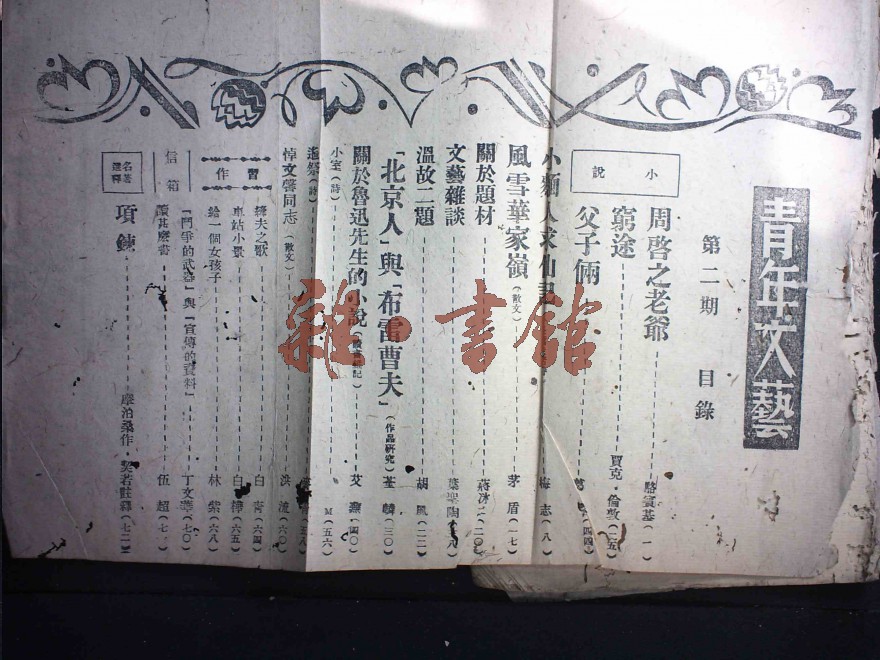 青年文藝
第二期 目錄
小說
周啓之老爺 駱賓基(一)
窮途 賈克·倫敦(二五)
父子倆 (四四)
小麵人求仙記 梅志(八)
風雪華家嶺(散文) 茅盾(一七)
關於題材
文藝雜談 葉聖陶
溫故二題 胡風(二二)
「北京人」與「布雷曹夫」(作品研究) 荃麟(三〇)
關於魯迅先生的小說 艾蕪(四〇)
小室(詩) M(五六)
遙祭(詩)
悼文馨同志(散文) 洪流(六〇)
習作
縴夫之歌 白青(六四)
車站小景 白樺(六五)
給一個女孩子 林紫(六八)
信箱
「鬥爭的武器」與「宣傳的資料」 丁文華(七〇)
讀其應書 伍超(七
名著選釋
項鍊 摩泊桑作·契若註釋(七二)
雜·書館